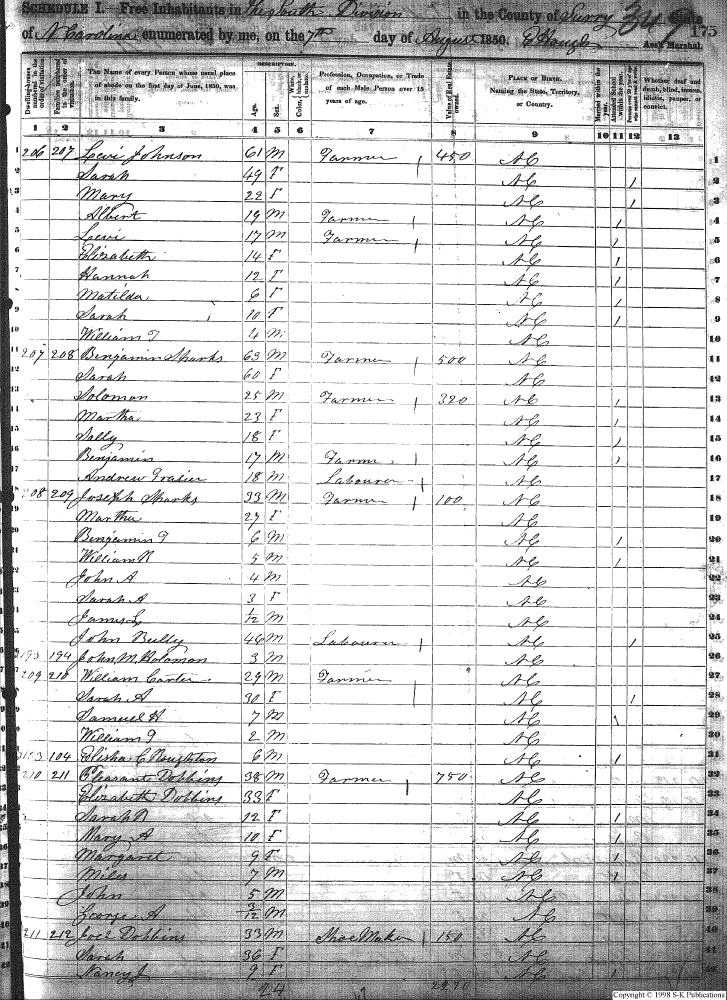 SCHEDULE I.—Free Inhabitants in The South Division in the County of Surry State
349 175
of N Carolina enumerated by me, on the 7th day of August 1850. Ass't Marshal.
Dwelling-houses numbered in the order of visitation.
Families numbered in the order of visitation.
The Name of every Person whose usual place of abode on the first day of June, 1850, was in this family.
DESCRIPTION.
Age.
Sex.
Color, White, black, or mulatto.
Profession, Occupation, or Trade of each Male Person over 15 years of age.
Value of Real Estate owned.
PLACE OF BIRTH. Naming the State, Territory, or Country.
Married within the year.
Attended School within the year.
Whether deaf and dumb, blind, insane, idiotic, pauper, or convict.
1 2 3 4 5 6 7 8 9 10 11 12 13
1 206 207 Levi Johnson 61 M Farmer 1 450 NC 1
2 Sarah 49 F NC 1 2
3 Mary 22 F NC 1 3
4 Albert 19 M Farmer 1 NC 1 4
5 Levi 17 M Farmer 1 NC 1 5
6 Elizabeth 14 F NC 1 6
7 Hannah 12 F NC 1 7
8 Matilda 6 F NC 1 8
9 Sarah 10 F NC 1 9
10 William T 4 M NC 10
11 207 208 Benjamin Sparks 63 M Farmer 1 500 NC 11
12 Sarah 60 F NC 12
13 Solomon 25 M Farmer 1 320 NC 1 13
14 Martha 23 F NC 1 14
15 Sally 18 F NC 1 15
16 Benjamin 17 M Farmer 1 NC 1 16
17 Andrew 18 M Labourer NC 17
18 208 209 Joseph Sparks 33 M Farmer 1 100 NC 18
19 Martha 27 F NC 19
20 Benjamin 6 M NC 1 20
21 William 5 M NC 1 21
22 John A 4 M NC 22
23 Sarah A 3 F NC 23
24 James L 1/12 M NC 24
25 John Bully 46 M Labourer 1 NC 1 25
26 194 John M 3 M NC 26
27 209 210 William Carter 29 M Farmer 1 NC 27
28 Sarah A 30 F NC 1 28
29 Samuel H 7 M NC 1 29
30 William 2 M NC 30
31 104 Elisha C 6 M NC 1 31
32 210 211 Pleasant Dobbins 38 M Farmer 1 750 NC 32
33 Elizabeth Dobbins 33 F NC 33
34 Sarah 12 F NC 1 34
35 Mary A 10 F NC 1 35
36 Margaret 9 F NC 1 36
37 Miles 7 M NC 1 37
38 John 5 M NC 38
39 George A 3/12 M NC 39
40 211 212 Joel Dobbins 33 M Shoe Maker 1 150 NC 40
41 Sarah 36 F NC 41
42 Nancy J 9 F NC 1 42
24 2270
Copyright © 1998 S-K Publications